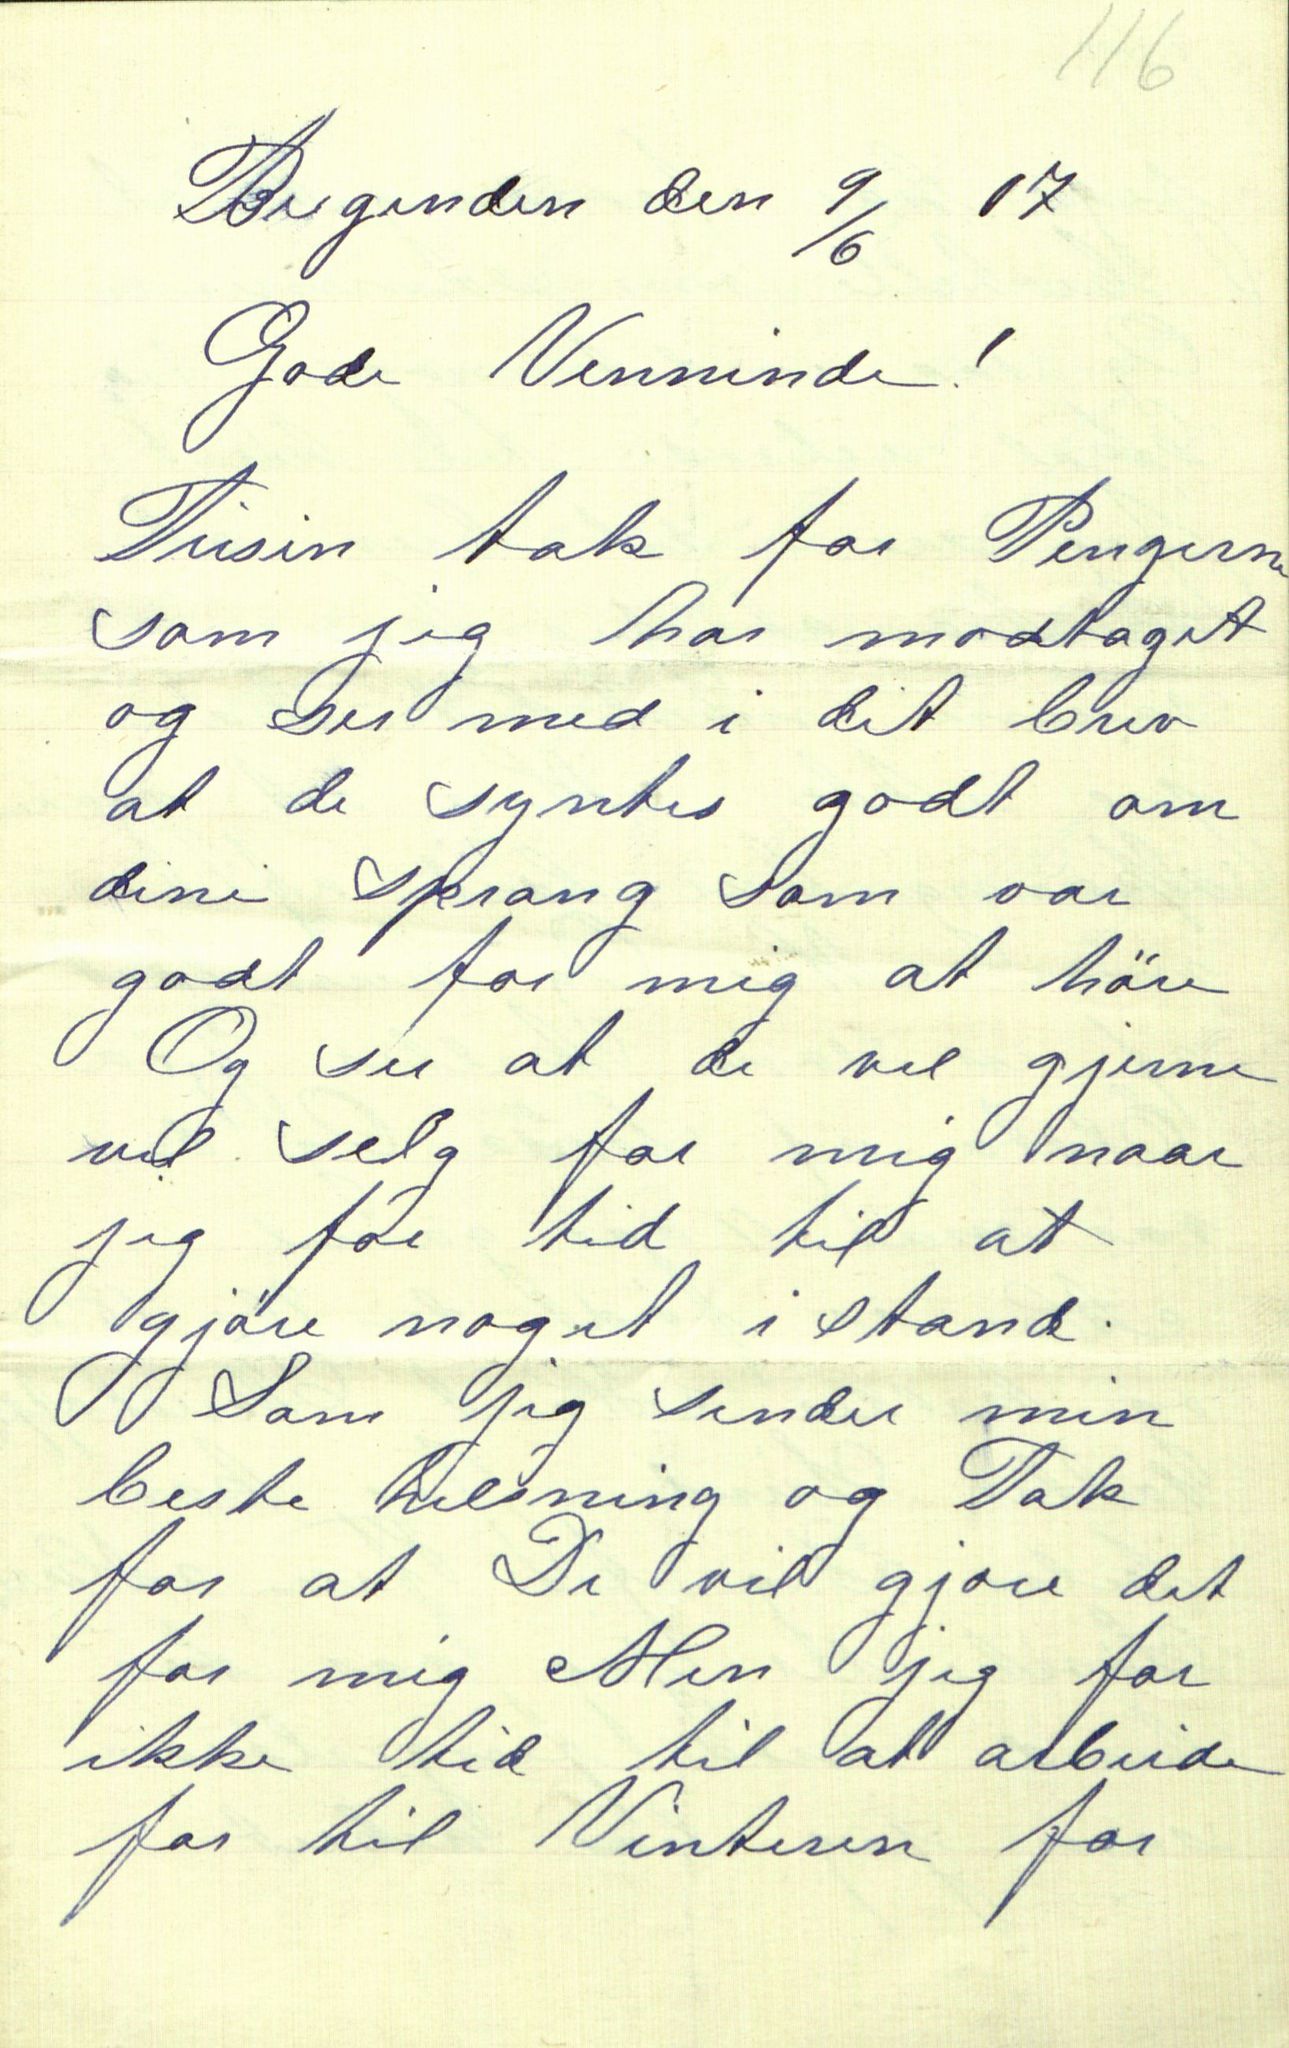 116
Bergenden den 9/6 17
Gode Venninde!
Tusin tak for Pengerne
som jeg har modtaget
og ser med i dit brev
at de syntes godt om
dine sprang som var
godt for mig at höre
Og ser at de vel gjerne
vil selg for mig naar
jeg for tid til at
gjöre noget i stand.
Som jeg sender min
beste helsning og Tak
for at De vil gjore det
for mig Men jeg for
ikke tid til at arbeide
for til Vinteren for